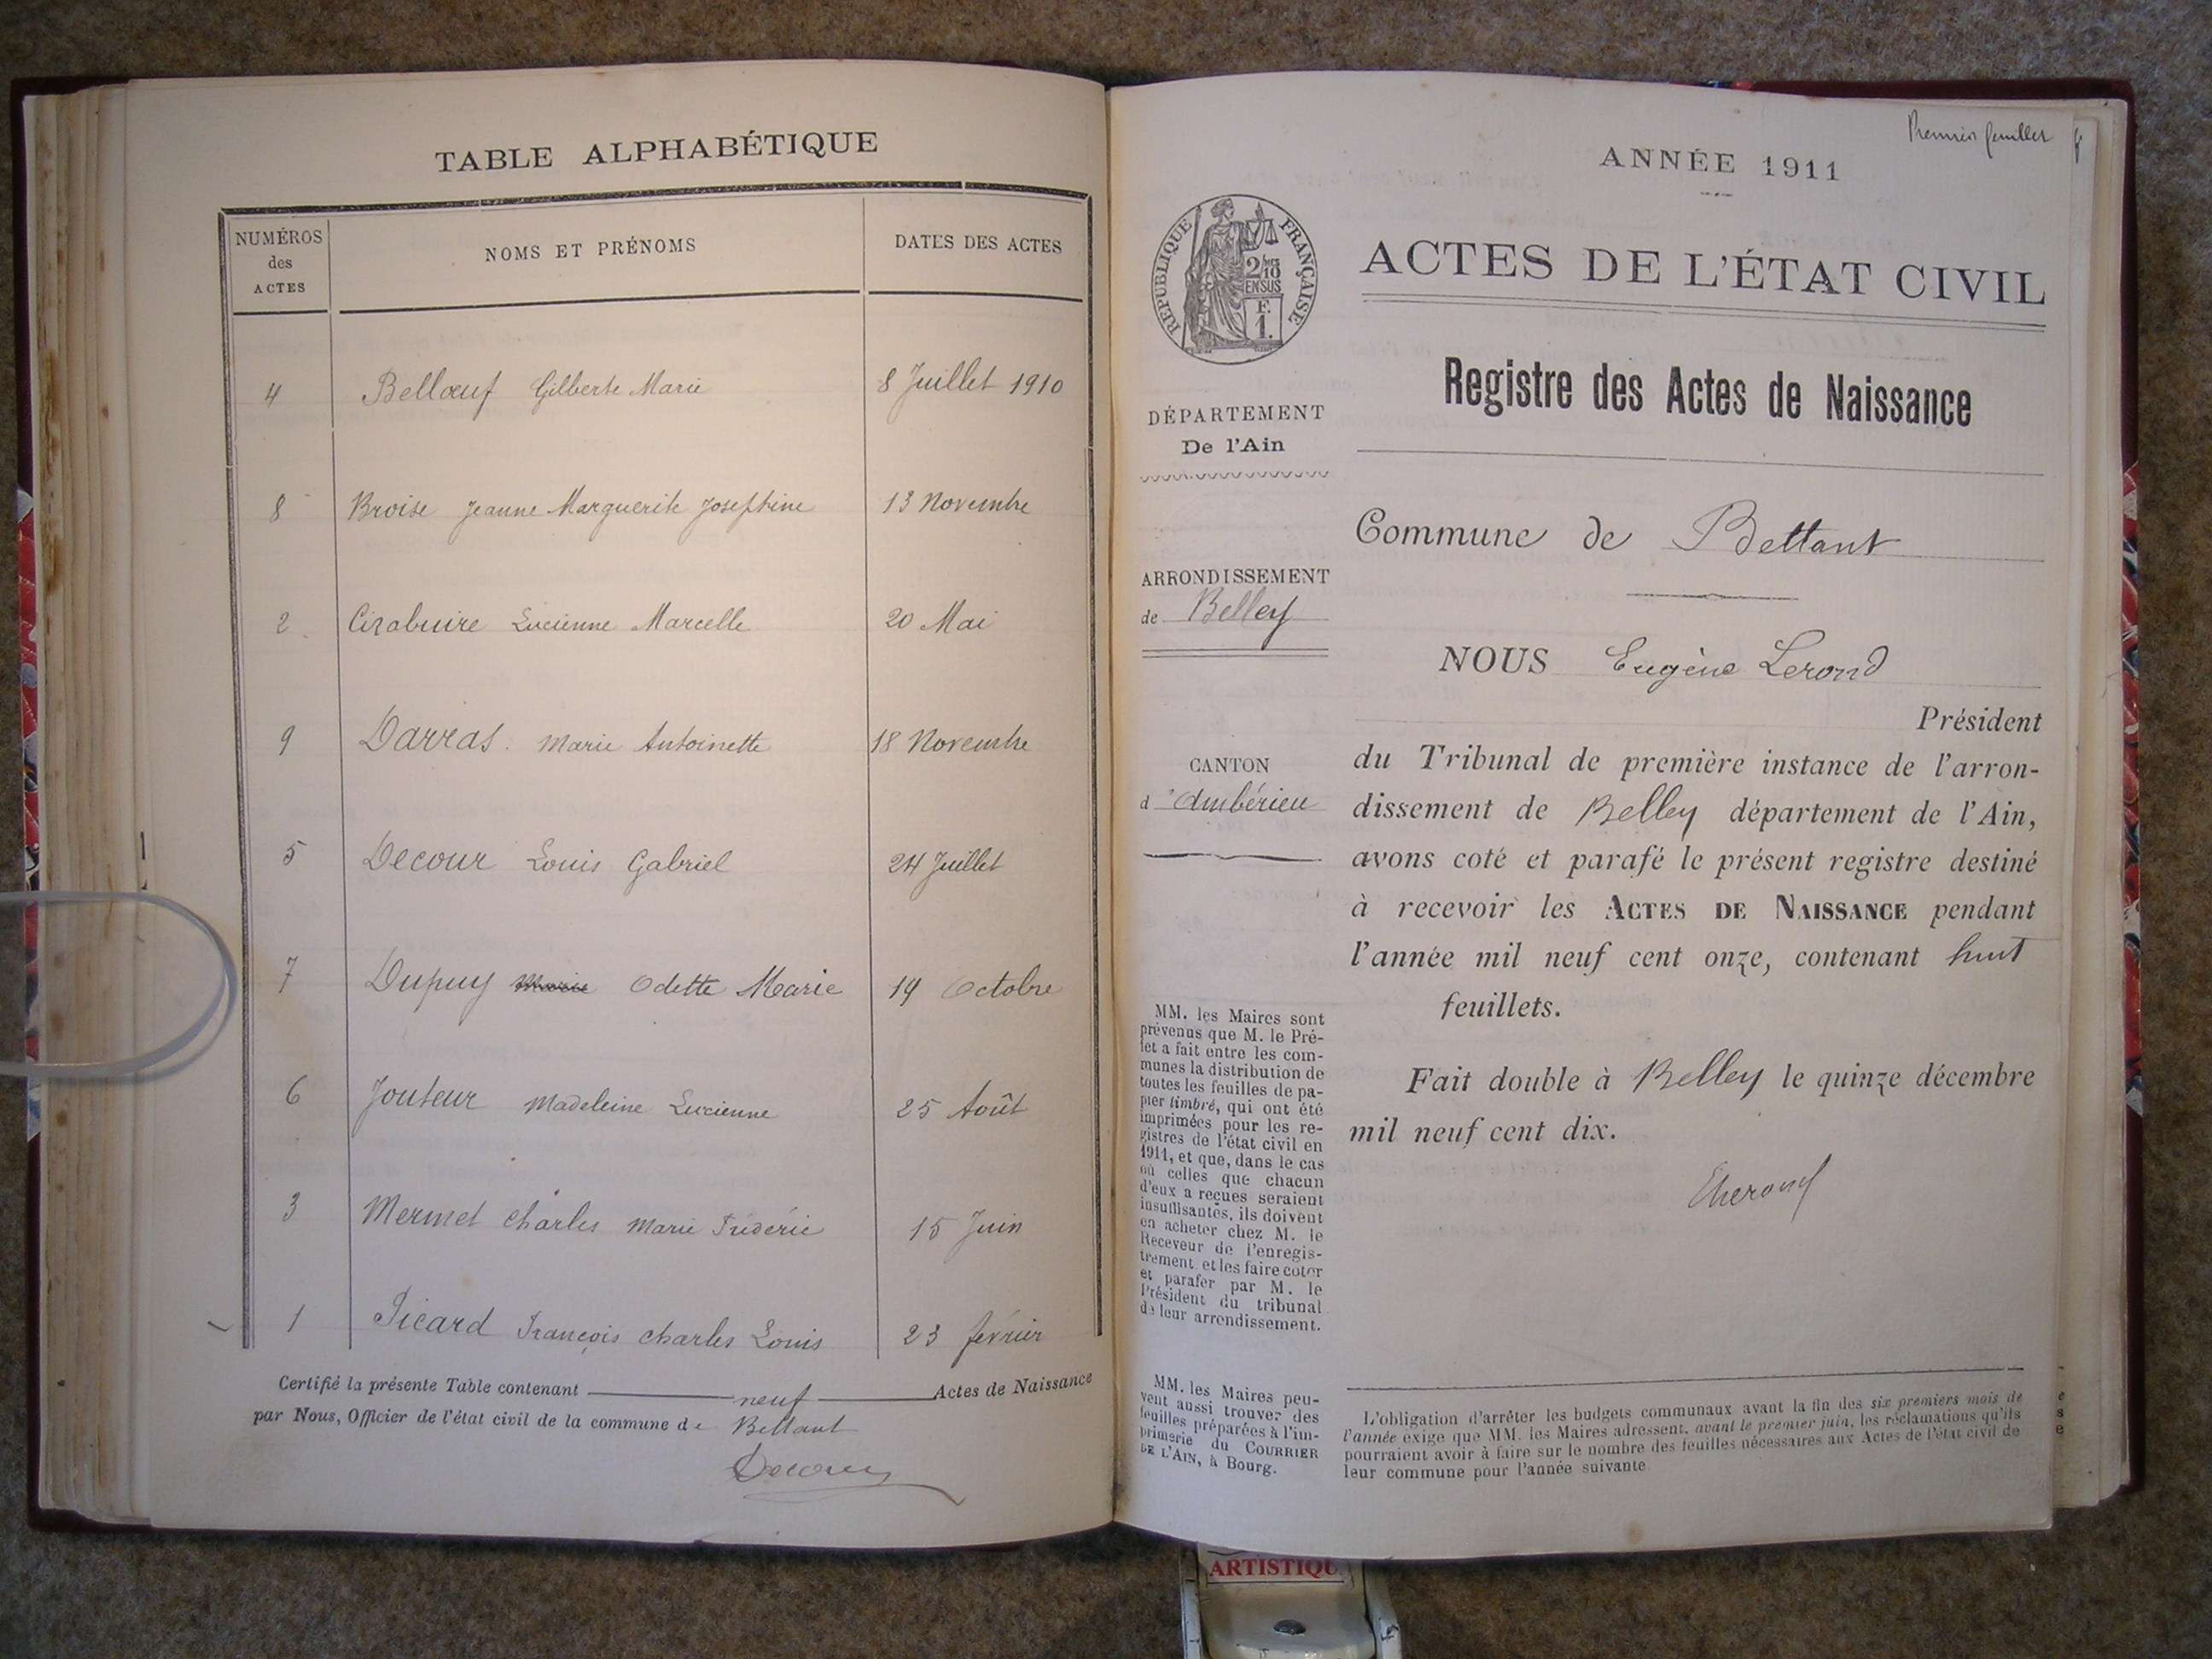 TABLE ALPHABÉTIQUE
NUMÉROS
des
ACTES
NOMS ET PRÉNOMS
DATES DES ACTES
4 Bellœuf Gilberte Marie 8 Juillet 1910
8 Broise Jeanne Marguerite Josephine 13 Novembre
2 Lucienne Marcelle 20 Mai
9 Darras Marie Antoinette 18 Novembre
5 Decour Louis Gabriel 24 Juillet
7 Dupuy Marie Odette Marie 19 Octobre
6 Jouteur Madeleine Lucienne 25 Août
3 Mermet Charles Marie Fréderic 15 Juin
1 Picard François Charles Louis 23 février
Certifié la présente Table contenant neuf Actes de Naissance
par Nous, Officier de l'état civil de la commune de Bettant
Decour
Premier feuillet
ANNÉE 1911
RÉPUBLIQUE FRANÇAISE
2/10
EN SUS
F.
1.
ACTES DE L'ÉTAT CIVIL
Registre des Actes de Naissance
DÉPARTEMENT
De l'Ain
Commune de Bettant
ARRONDISSEMENT
de Belley
NOUS Eugène Lerond
Président
CANTON
d'Ambérieu
du Tribunal de première instance de l'arron-
dissement de Belley département de l'Ain,
avons coté et parafé le présent registre destiné
à recevoir les ACTES DE NAISSANCE pendant
l'année mil neuf cent onze, contenant huit
feuillets.
Fait double à Belley le quinze décembre
mil neuf cent dix.
MM. les Maires sont
prévenus que M. le Pré-
fet a fait entre les com-
munes la distribution de
toutes les feuilles de pa-
pier timbré, qui ont été
imprimées pour les re-
gistres de l'état civil en
1911, et que, dans le cas
où celles que chacun
d'eux a reçues seraient
insuffisantes, ils doivent
en acheter chez M. le
Receveur de l'enregis-
trement et les faire coter
et parafer par M. le
Président du tribunal
de leur arrondissement.
MM. les Maires peu-
vent aussi trouver des
feuilles préparées à l'im-
primerie du COURRIER
DE L'AIN, à Bourg.
L'obligation d'arrêter les budgets communaux avant la fin des six premiers mois de
l'année exige que MM. les Maires adressent, avant le premier juin, les réclamations qu'ils
pourraient avoir à faire sur le nombre des feuilles nécessaires aux Actes de l'état civil de
leur commune pour l'année suivante
ARTISTIQU